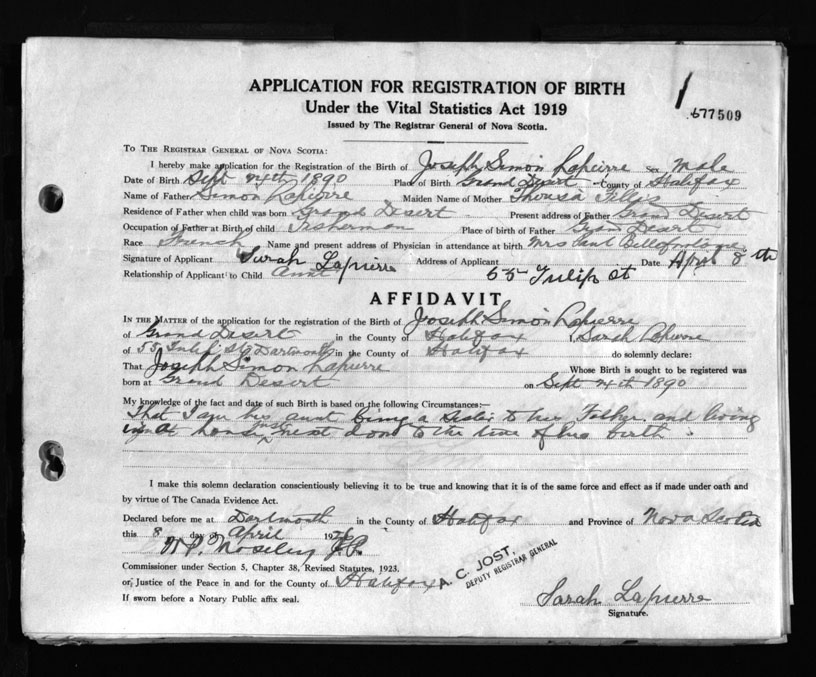 APPLICATION FOR REGISTRATION OF BIRTH
Under the Vital Statistics Act 1919
Issued by The Registrar General of Nova Scotia.
677509
TO THE REGISTRAR GENERAL OF NOVA SCOTIA:
I hereby make application for the Registration of the Birth of Joseph Simon Lapierre sex Male
Date of Birth Sept 24th 1890 Place of Birth Grand Desert County of Halifax
Name of Father Simon Lapierre Maiden Name of Mother
Residence of Father when child was born Grand Desert Present address of Father Grand Desert
Occupation of Father at Birth of child Fisherman Place of birth of Father Grand Desert
Race French Name and present address of Physician in attendance at birth Mrs
Signature of Applicant Sarah Lapierre Address of Applicant Date April 8th
Relationship of Applicant to Child Aunt 55 Tulip St
AFFIDAVIT
IN THE MATTER of the application for the registration of the Birth of Joseph Simon Lapierre
of Grand Desert in the County of Halifax I, Sarah Lapierre
of 55 Tulip St Dartmouth in the County of Halifax do solemnly declare:
That Joseph Simon Lapierre Whose Birth is sought to be registered was
born at Grand Desert on Sept 24th 1890
My knowledge of the fact and date of such Birth is based on the following Circumstances:—
That I am his aunt being a Sister to his Father and living
at home just next door to the time of his birth.
I make this solemn declaration conscientiously believing it to be true and knowing that it is of the same force and effect as if made under oath and
by virtue of The Canada Evidence Act.
Declared before me at Dartmouth in the County of Halifax and Province of Nova Scotia
this 8 day of April
W P. Moseley J.P.
Commissioner under Section 5, Chapter 38, Revised Statutes, 1923.
or, Justice of the Peace in and for the County of Halifax
A. C. JOST,
DEPUTY REGISTRAR GENERAL
If sworn before a Notary Public affix seal.
Sarah Lapierre
Signature.